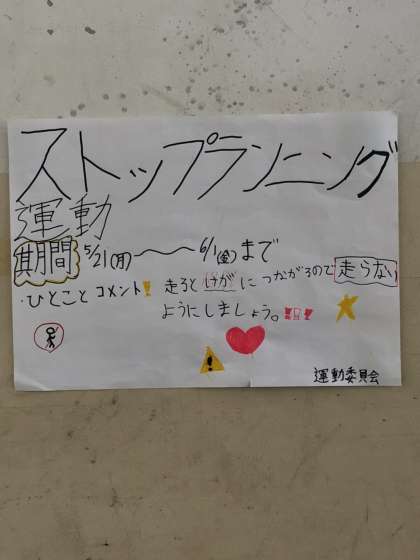 ストップランニング
運動
期間 5/21(月)〜6/1(金)まで
・ひとことコメント! 走るとけがにつながるので走らない
ようにしましょう。!!!
運動委員会